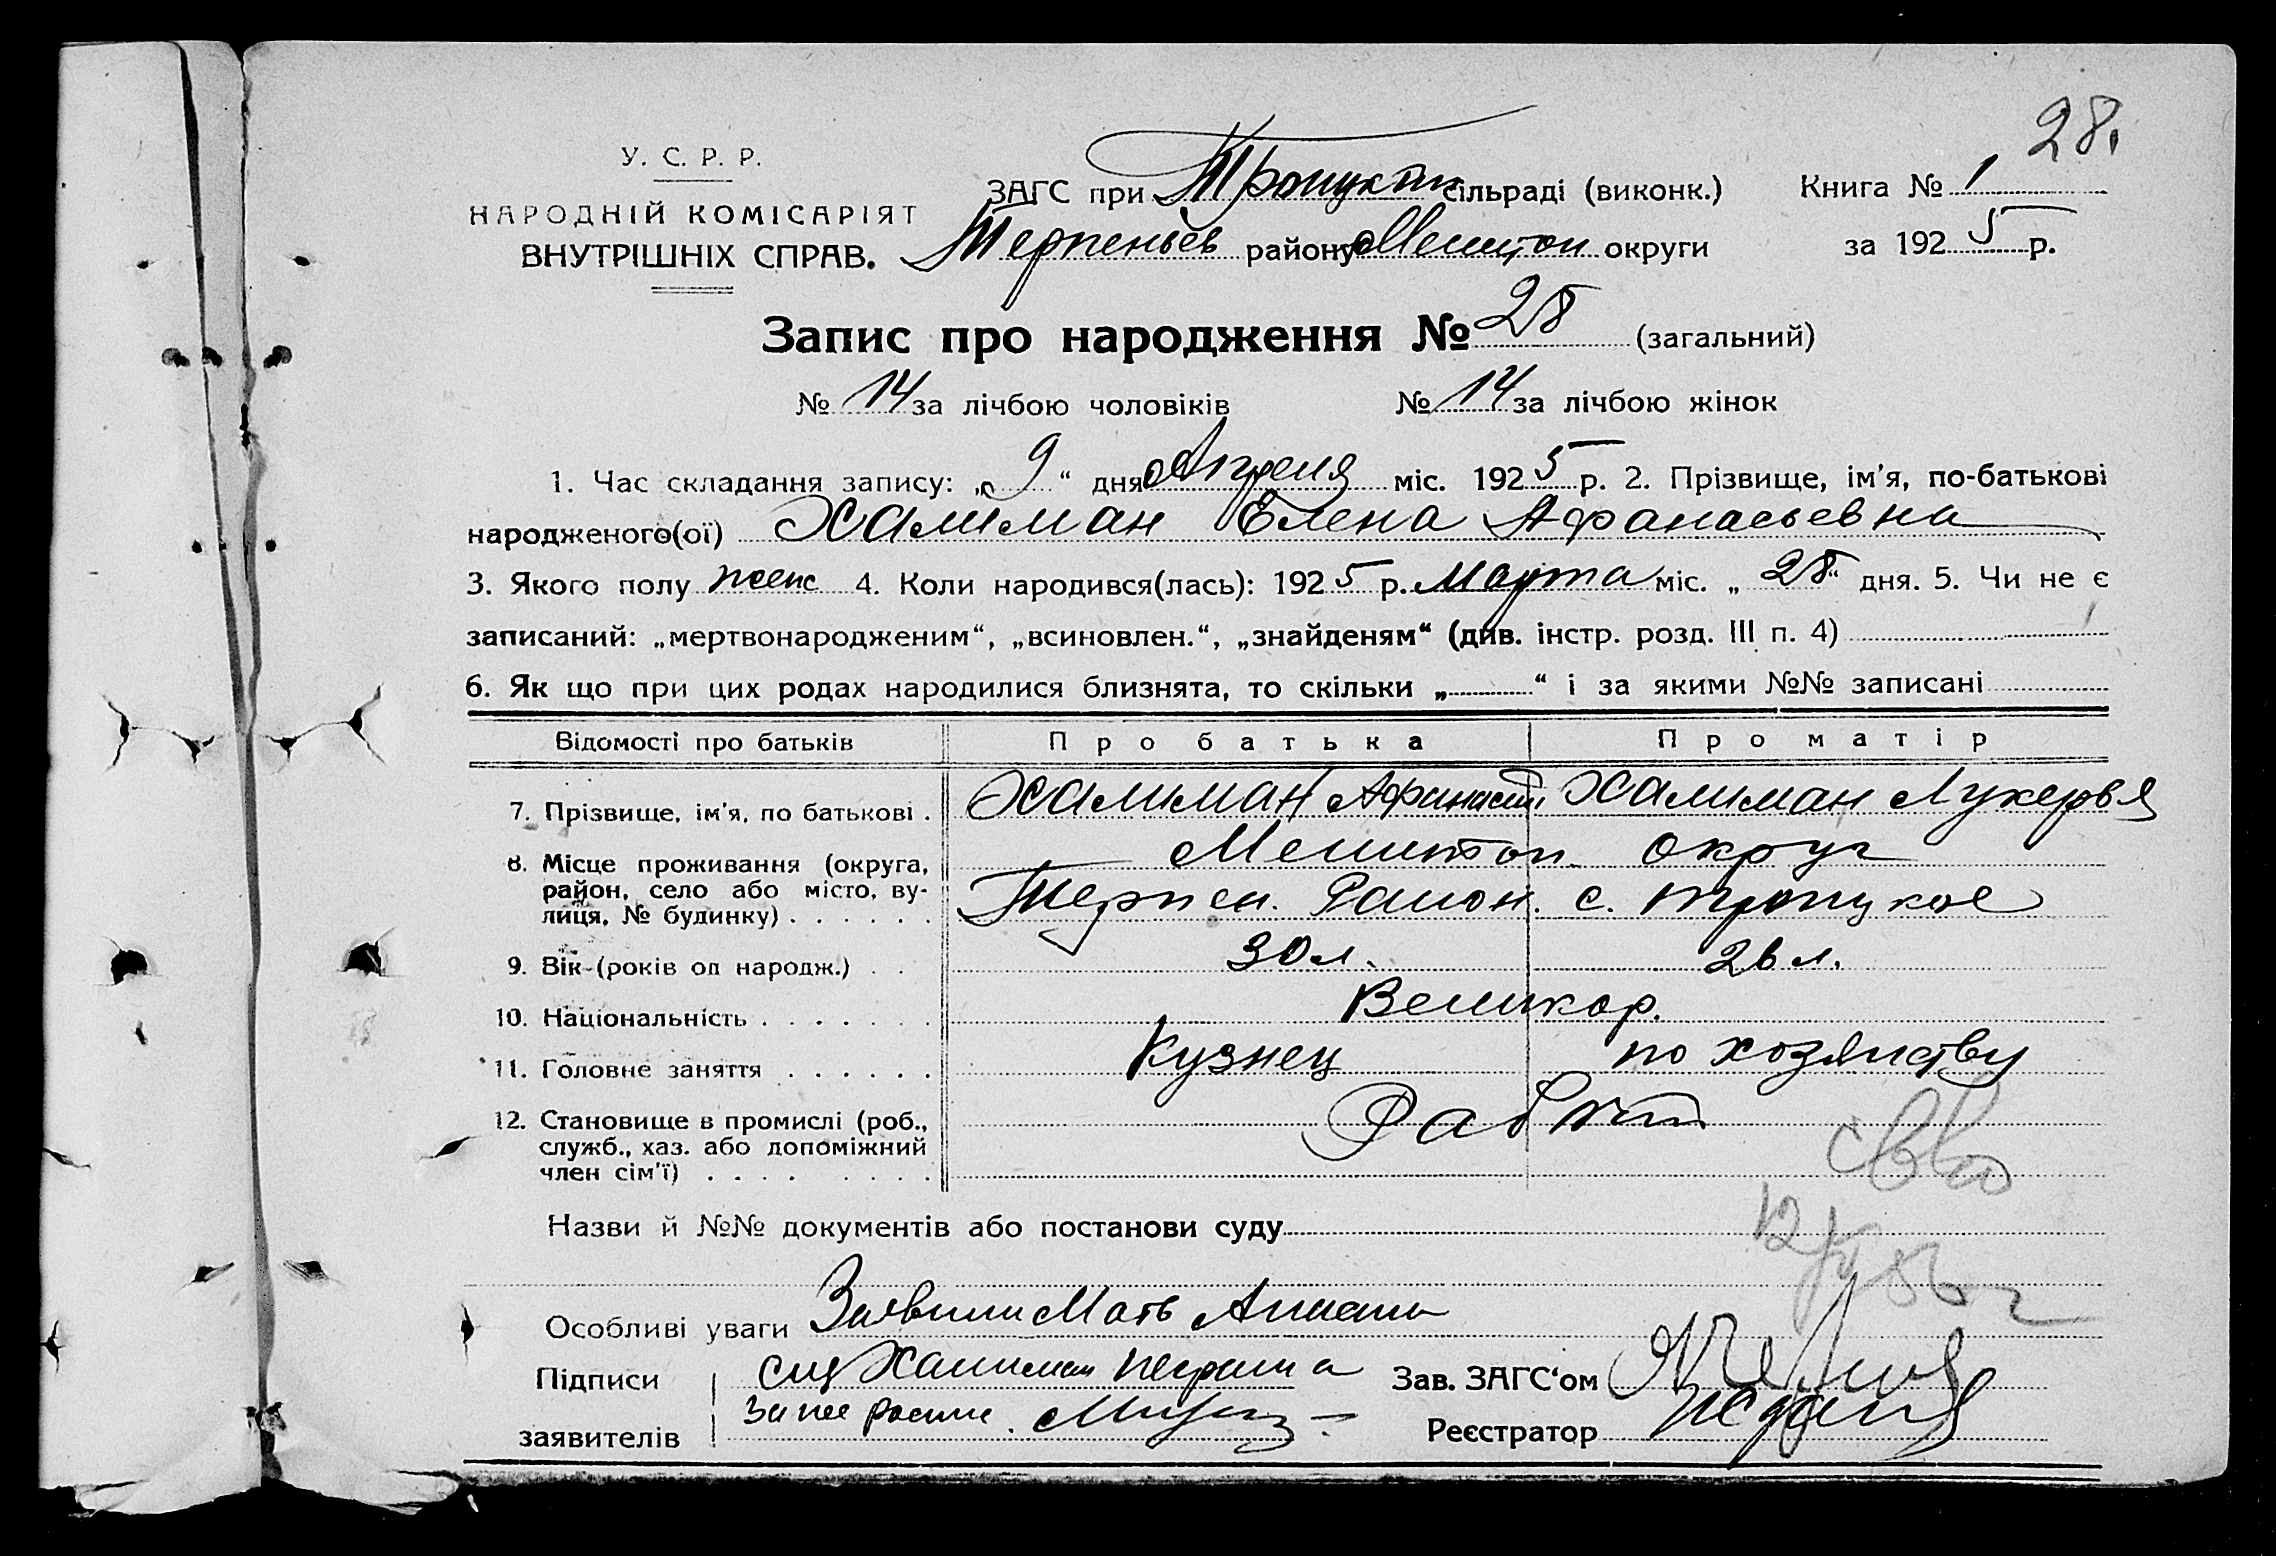 28.
У. С. Р. Р.
НАРОДНІЙ КОМІСАРІЯТ
ВНУТРІШНІХ СПРАВ.
ЗАГС при Троицком сільраді (виконк.) Книга № 1
Терпеньев району Мелитоп округи за 1925 р.
Запис про народження № 28 (загальний)
№ 14 за лічбою чоловіків № 14 за лічбою жінок
1. Час складання запису: „ 9 “ дня Апреля міс. 1925 р. 2. Прізвище, ім'я, по-батькові
народженого(ої) Халиман Елена Афанасьевна
3. Якого полу женс 4. Коли народився(лась): 1925 р. Марта міс. „ 28 “ дня. 5. Чи не є
записаний: „мертвонародженим“, „всиновлен.“, „знайденям“ (див. інстр. розд. III п. 4)
6. Як що при цих родах народилися близнята, то скільки „ “ і за якими №№ записані
Відомості про батьків Про батька Про матір
7. Прізвище, ім'я, по батькові . Халиман Афанасий Халиман Лукерья
8. Місце проживання (округа, Мелитоп округ
район, село або місто, ву- Терпен. Район. с. Троицкое
лиця, № будинку) . . . . . .
9. Вік (років од народж.) . . 30 л. 26 л.
10. Національність . . . . . . . Великор.
11. Головне заняття . . . . . . Кузнец по хозяйству
12. Становище в промислі (роб.,
служб., хаз. або допоміжний
член сім'ї) . . . . . . . .
Назви й №№ документів або постанови суду
Особливі уваги Заявили Мать
Підписи Халиман Зав. ЗАГС'ом
заявителів Реєстратор